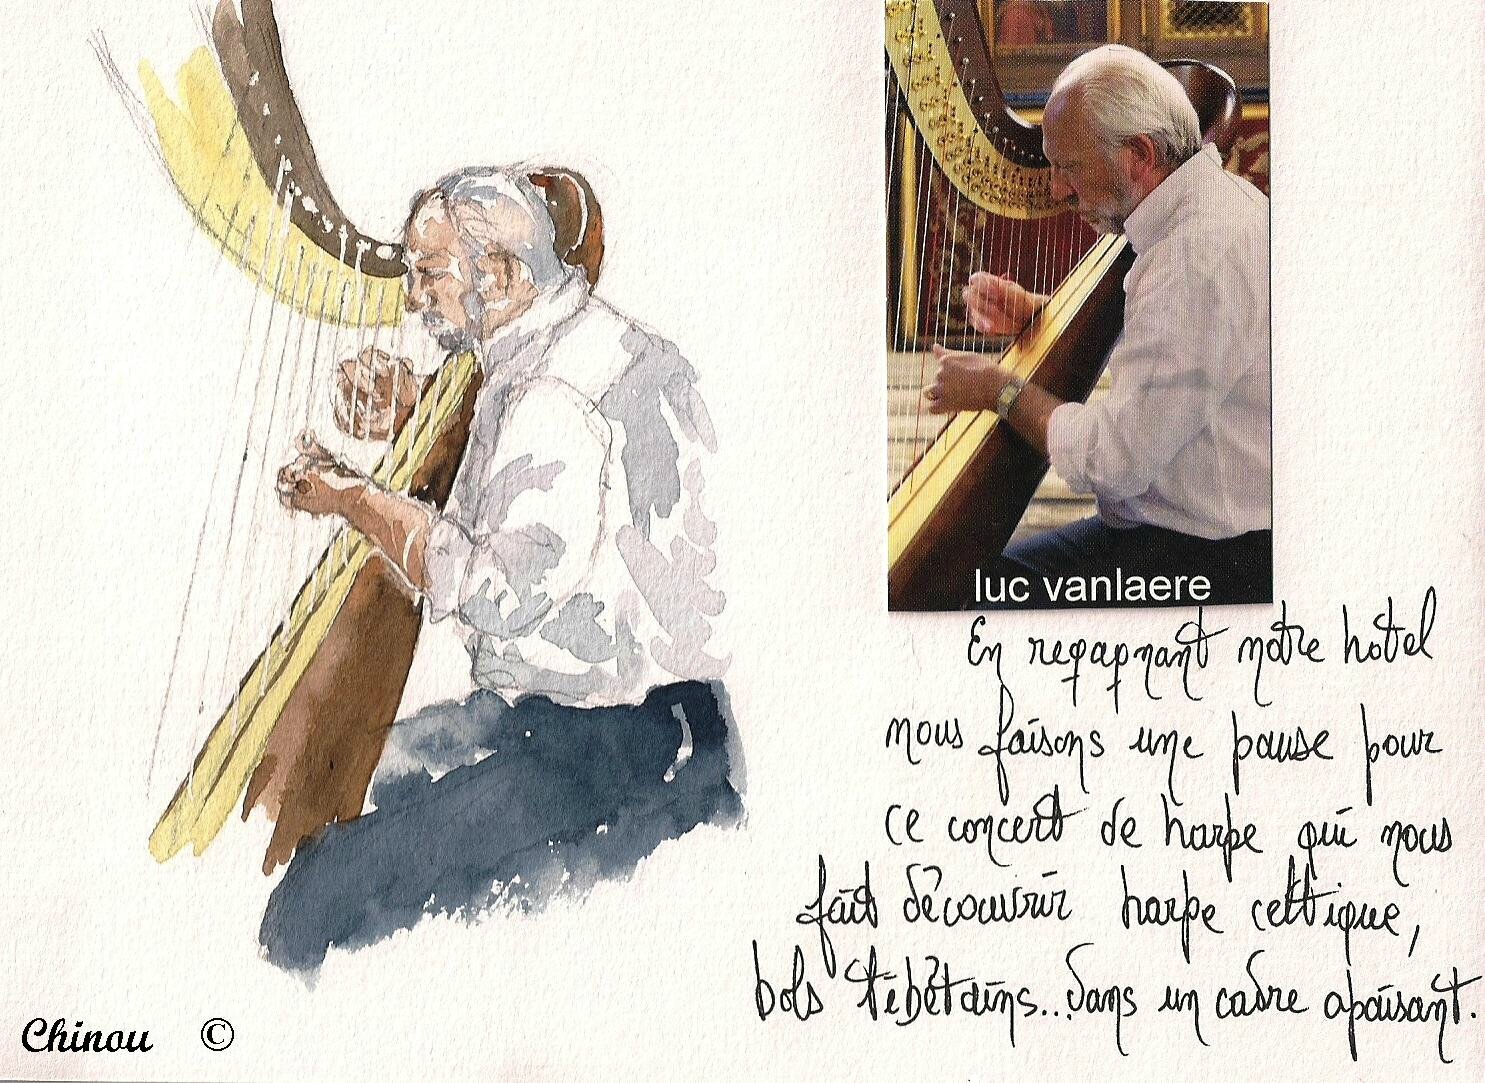 luc vanlaere
En regagnant notre hotel
nous faisons une pause pour
ce concert de harpe qui nous
fait découvrir harpe celtique,
bols tibétains... dans un cadre apaisant.
Chinou ©